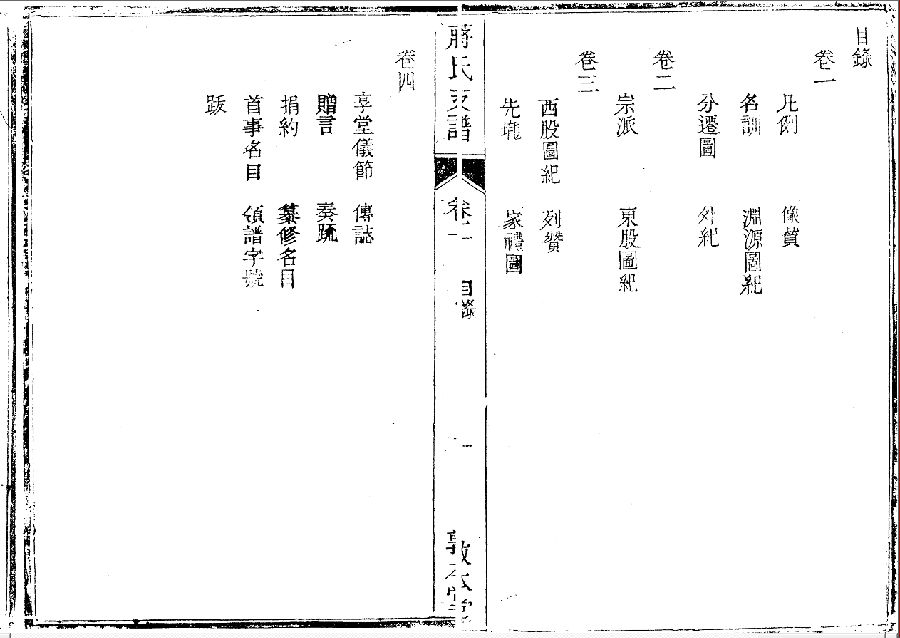 目錄
卷一
凡例　像贊
名訓　淵源圖紀
分遷圖　外紀
卷二
宗派　東股圖紀
卷三
西股圖紀　列贊
先壠　家禮圖
蔣氏支譜　卷一　目錄　一　敦本堂
卷四
享堂儀節　傳誌
贈言　奏疏
捐約　纂修名目
首事名目　領譜字號
跋